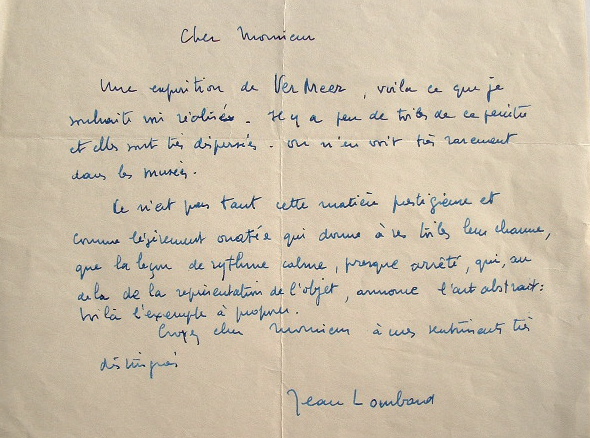 Cher Monsieur
Une exposition de Ver Meer, voila ce que je
souhaite voir réalisée. Il y a peu de toiles de ce peintre
et elles sont très dispersées. on n'en voit très rarement
dans les musées.
Ce n'est pas tant cette matière prestigieuse et
comme légèrement ouatée qui donne à ses toiles leur charme,
que la leçon de rythme calme, presque arrêté, qui, au
dela de la représentation de l'objet, annonce l'art abstrait :
Voilà l'exemple à proposer.
Croyez cher Monsieur à mes sentiments très
distingués
Jean Lombard